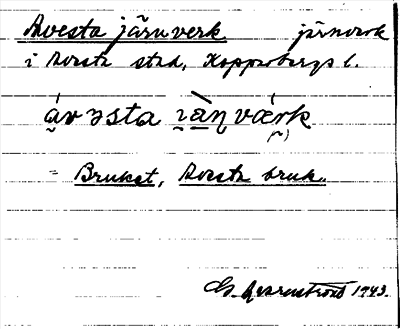 Avesta järnverk järnverk
i Avesta stad, Kopparbergs l.
ávəsta ıàŋværk
(r)
= Bruket, Avesta bruk.
1943.